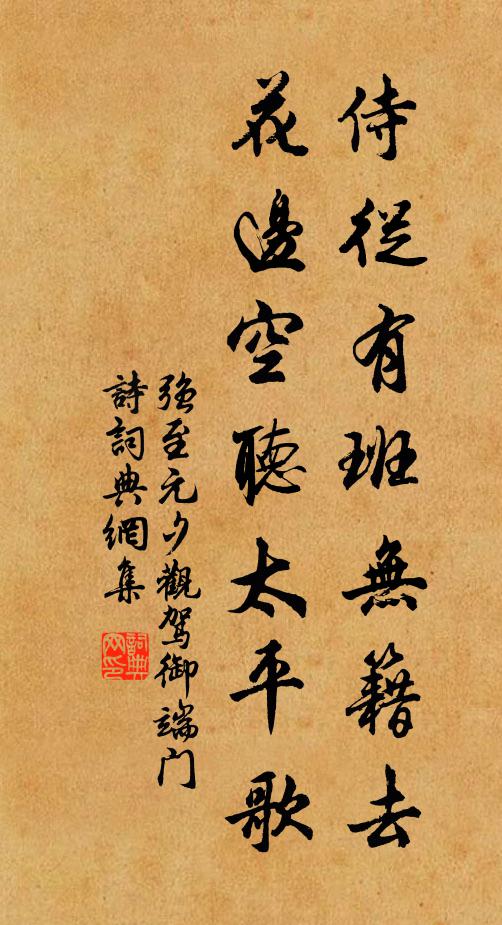 侍從有班無籍去
花邊空聽太平歌
強至元夕觀駕御端门
詩词典網集
詞典
网印